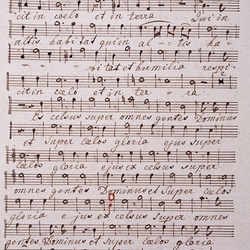 cit in cœlo et in terra Qui in
altis habitat qui in al- tis ha-
bitat et humilia respi
cit in cœlo et in ter- ra
Excelsus super omnes gentes Dominus
et super cœlos gloria ejus super
cœlos gloria ejus excelsus super
omnes gentes Dominus et super cœlos
gloria ejus excelsus super omnes
gentes Dominus et super cœlos gloria